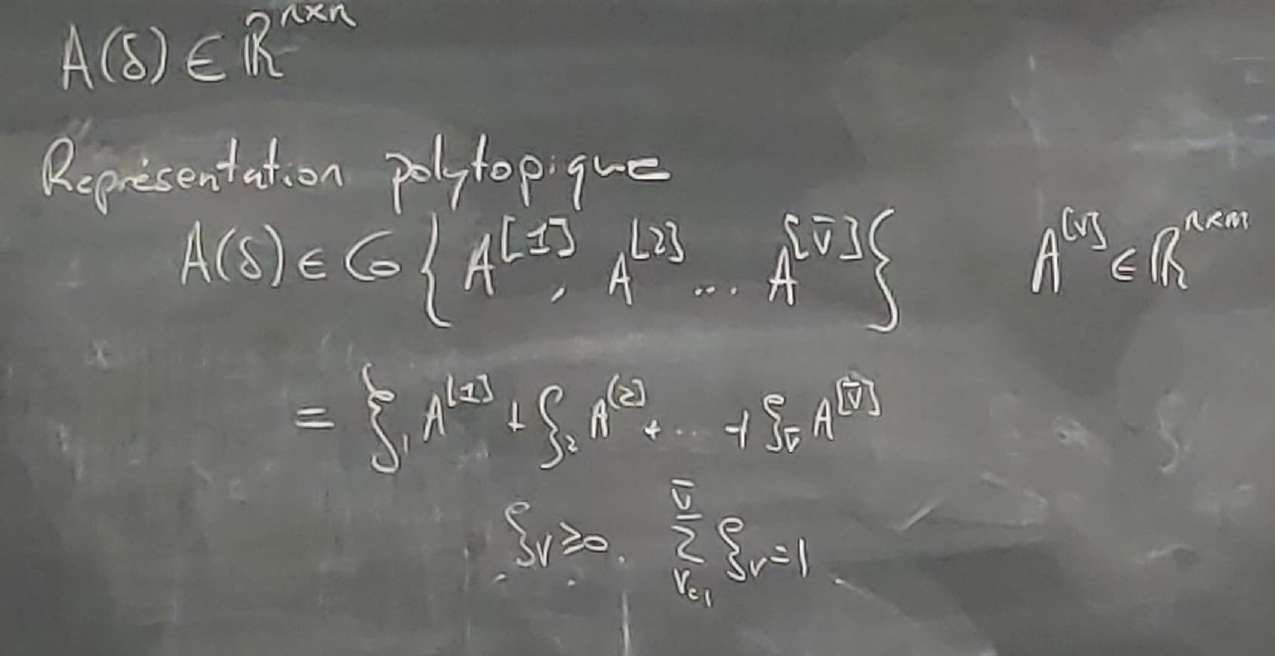 A(δ) ∈ ℝ^{n×n}
Représentation polytopique
A(δ) ∈ Co { A^{[1]}, A^{[2]} ... A^{[v̄]} } A^{[v]} ∈ ℝ^{n×m}
= ξ_1 A^{[1]} + ξ_2 A^{[2]} + ... + ξ_v̄ A^{[v̄]}
ξ_v ≥ 0. ∑_{v=1}^{v̄} ξ_v = 1